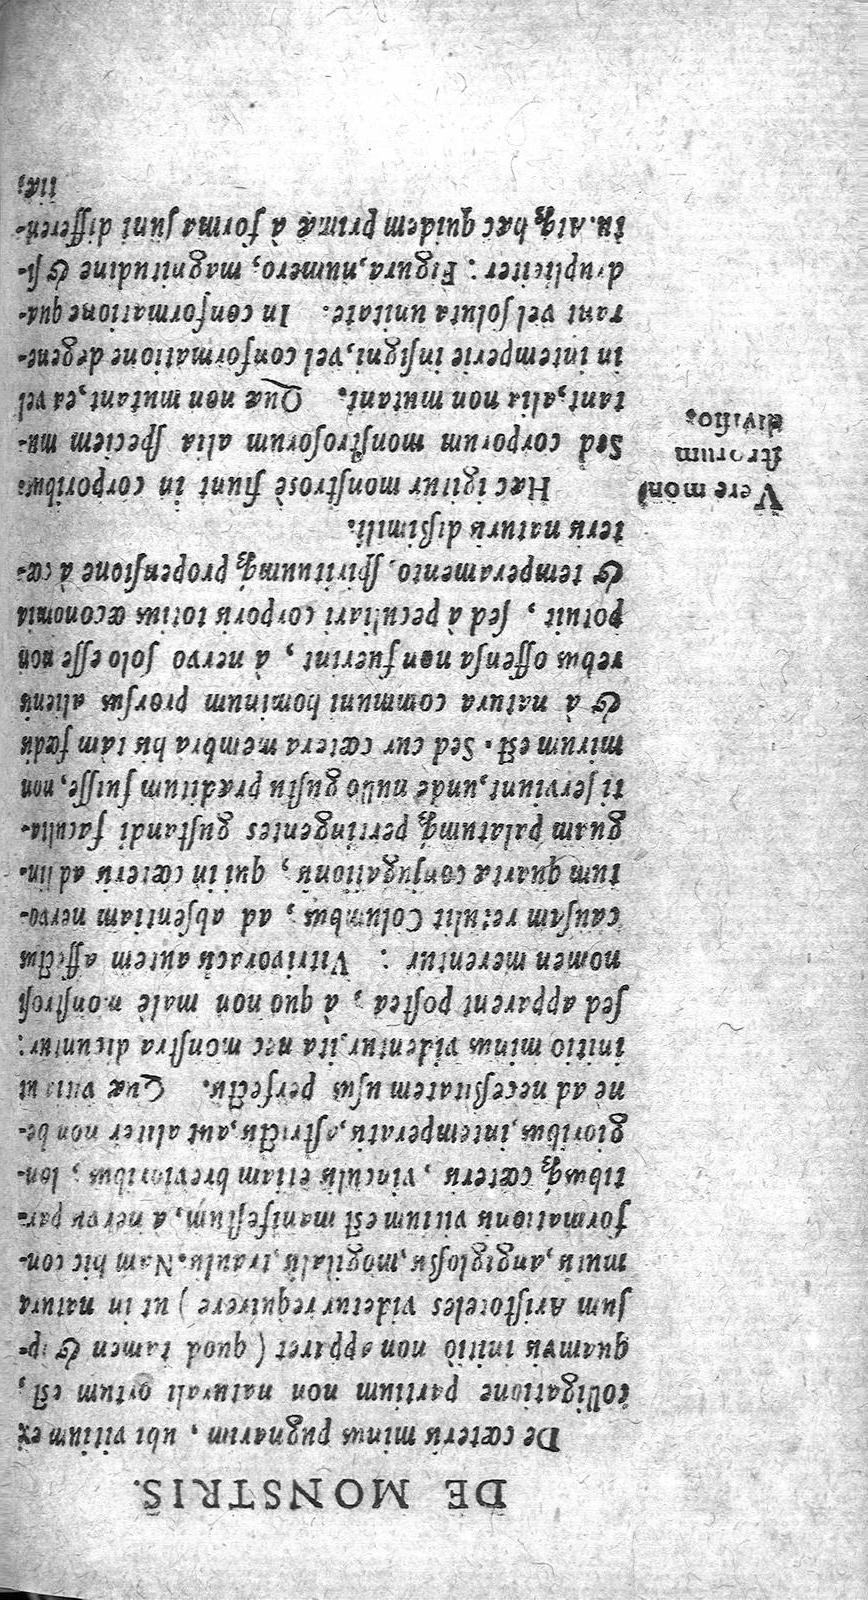 DE MONSTRIS.
De cæteris minus pugnarim, ubi vitium ex
colligatione partium non naturali ortum est,
quamvis initiò non apparet (quod tamen & ip-
sum Aristoteles videtur requirere) ut in natura
mutis, angiglossis, mogilalis, traulis. Nam hic con-
formationis vitium est manifestum, a nervis par-
tibusq́ cæteris, vinculis etiam brevioribus, lon-
gioribus, intemperatis, astrictis, aut aliter non be-
ne ad necessitatem usus perfectis. Quæ vitia ut
initio minus videntur, ita nec monstra dicuntur:
sed apparent postea, à quo non malè monstrosi
nomen merentur: Vitrivoracis autem affectus
causam retulit Columbus, ad absentiam nervo-
rum quartæ conjugationis, qui in cæteris ad lin-
guam palatumq́ pertingentes gustandi faculta-
ti serviunt, unde nullo gustu præditum fuisse, non
mirum est. Sed cur cætera membra his tam fœdis
& à natura communi hominum prorsus alienis
rebus offensa non fuerint, à nervo solo esse non
potuit, sed à peculiari corporis totius œconomia
& temperamento, spirituumq́ propensione à cæ-
teris natura dißimili.
Hæc igitur monstrosè fiunt in corporibus.
Sed corporum monstrosorum alia speciem mu-
tant, alia non mutant. Quæ non mutant, ea vel
in intemperie insigni, vel conformatione degene-
rant vel soluta unitate. In conformatione qua-
drupliciter: Figura, numero, magnitudine & si-
tu. Atq́ hæc quidem primæ à forma sunt differen-
tiæ;
Vere mon-
strorum
divisio.